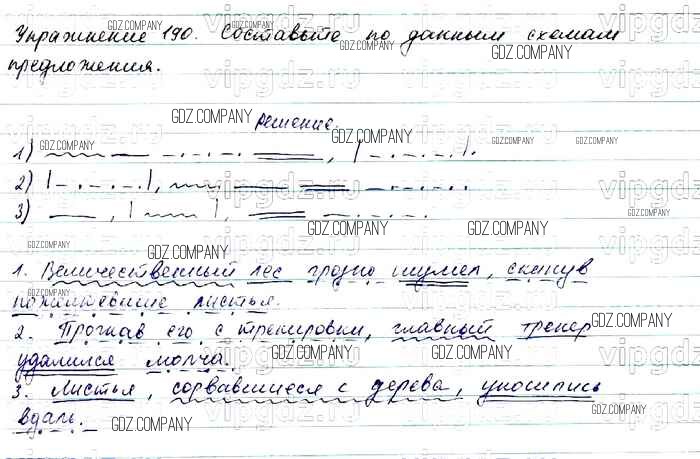 Упражнение 190. Составьте по данным схемам
предложения.
Решение.
1)
2)
3)
1. Величественный лес грозно шумел, скинув
пожелтевшие листья.
2. Прогнав его с тренировки, главный тренер
удалился молча.
3. Листья, сорвавшиеся с дерева, уносились
вдаль.
GDZ.COMPANY
vipgdz.ru